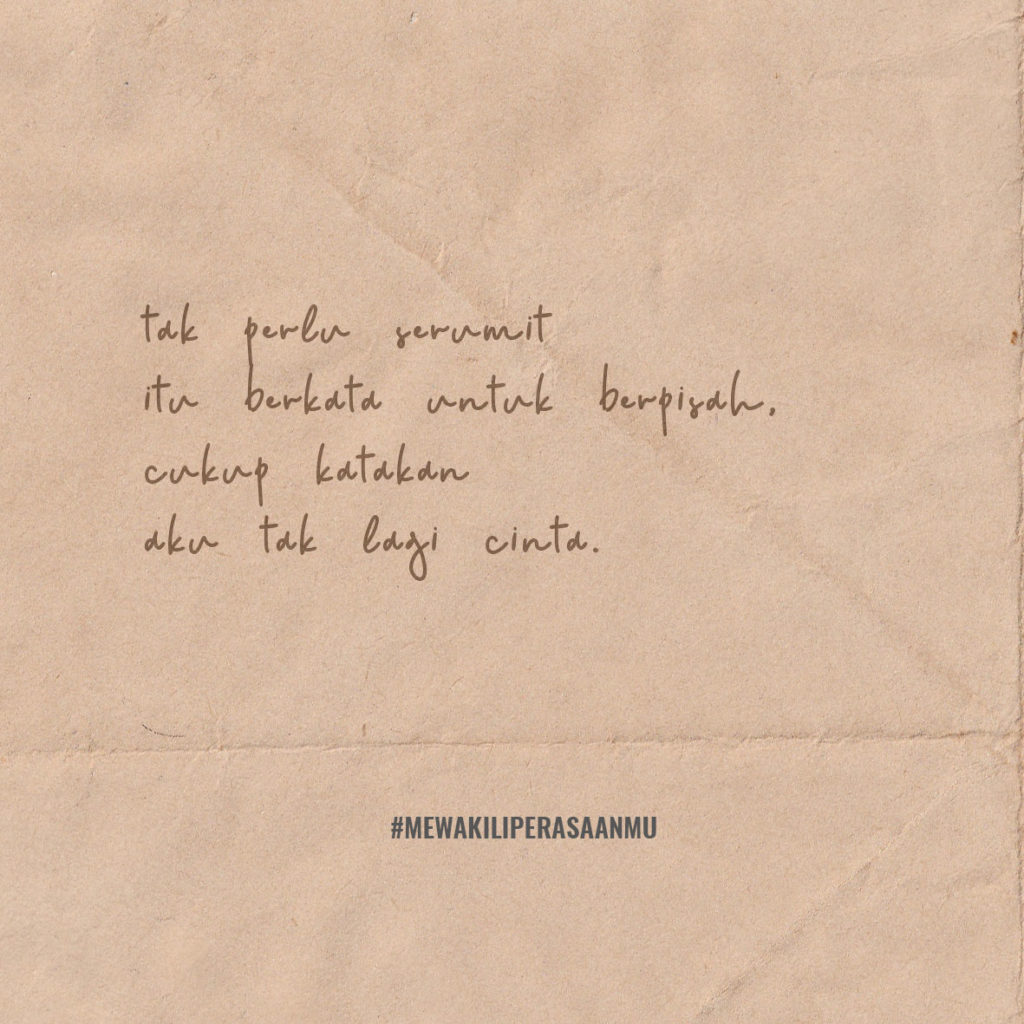 tak perlu serumit
itu berkata untuk berpisah,
cukup katakan
aku tak lagi cinta.
#MEWAKILIPERASAANMU